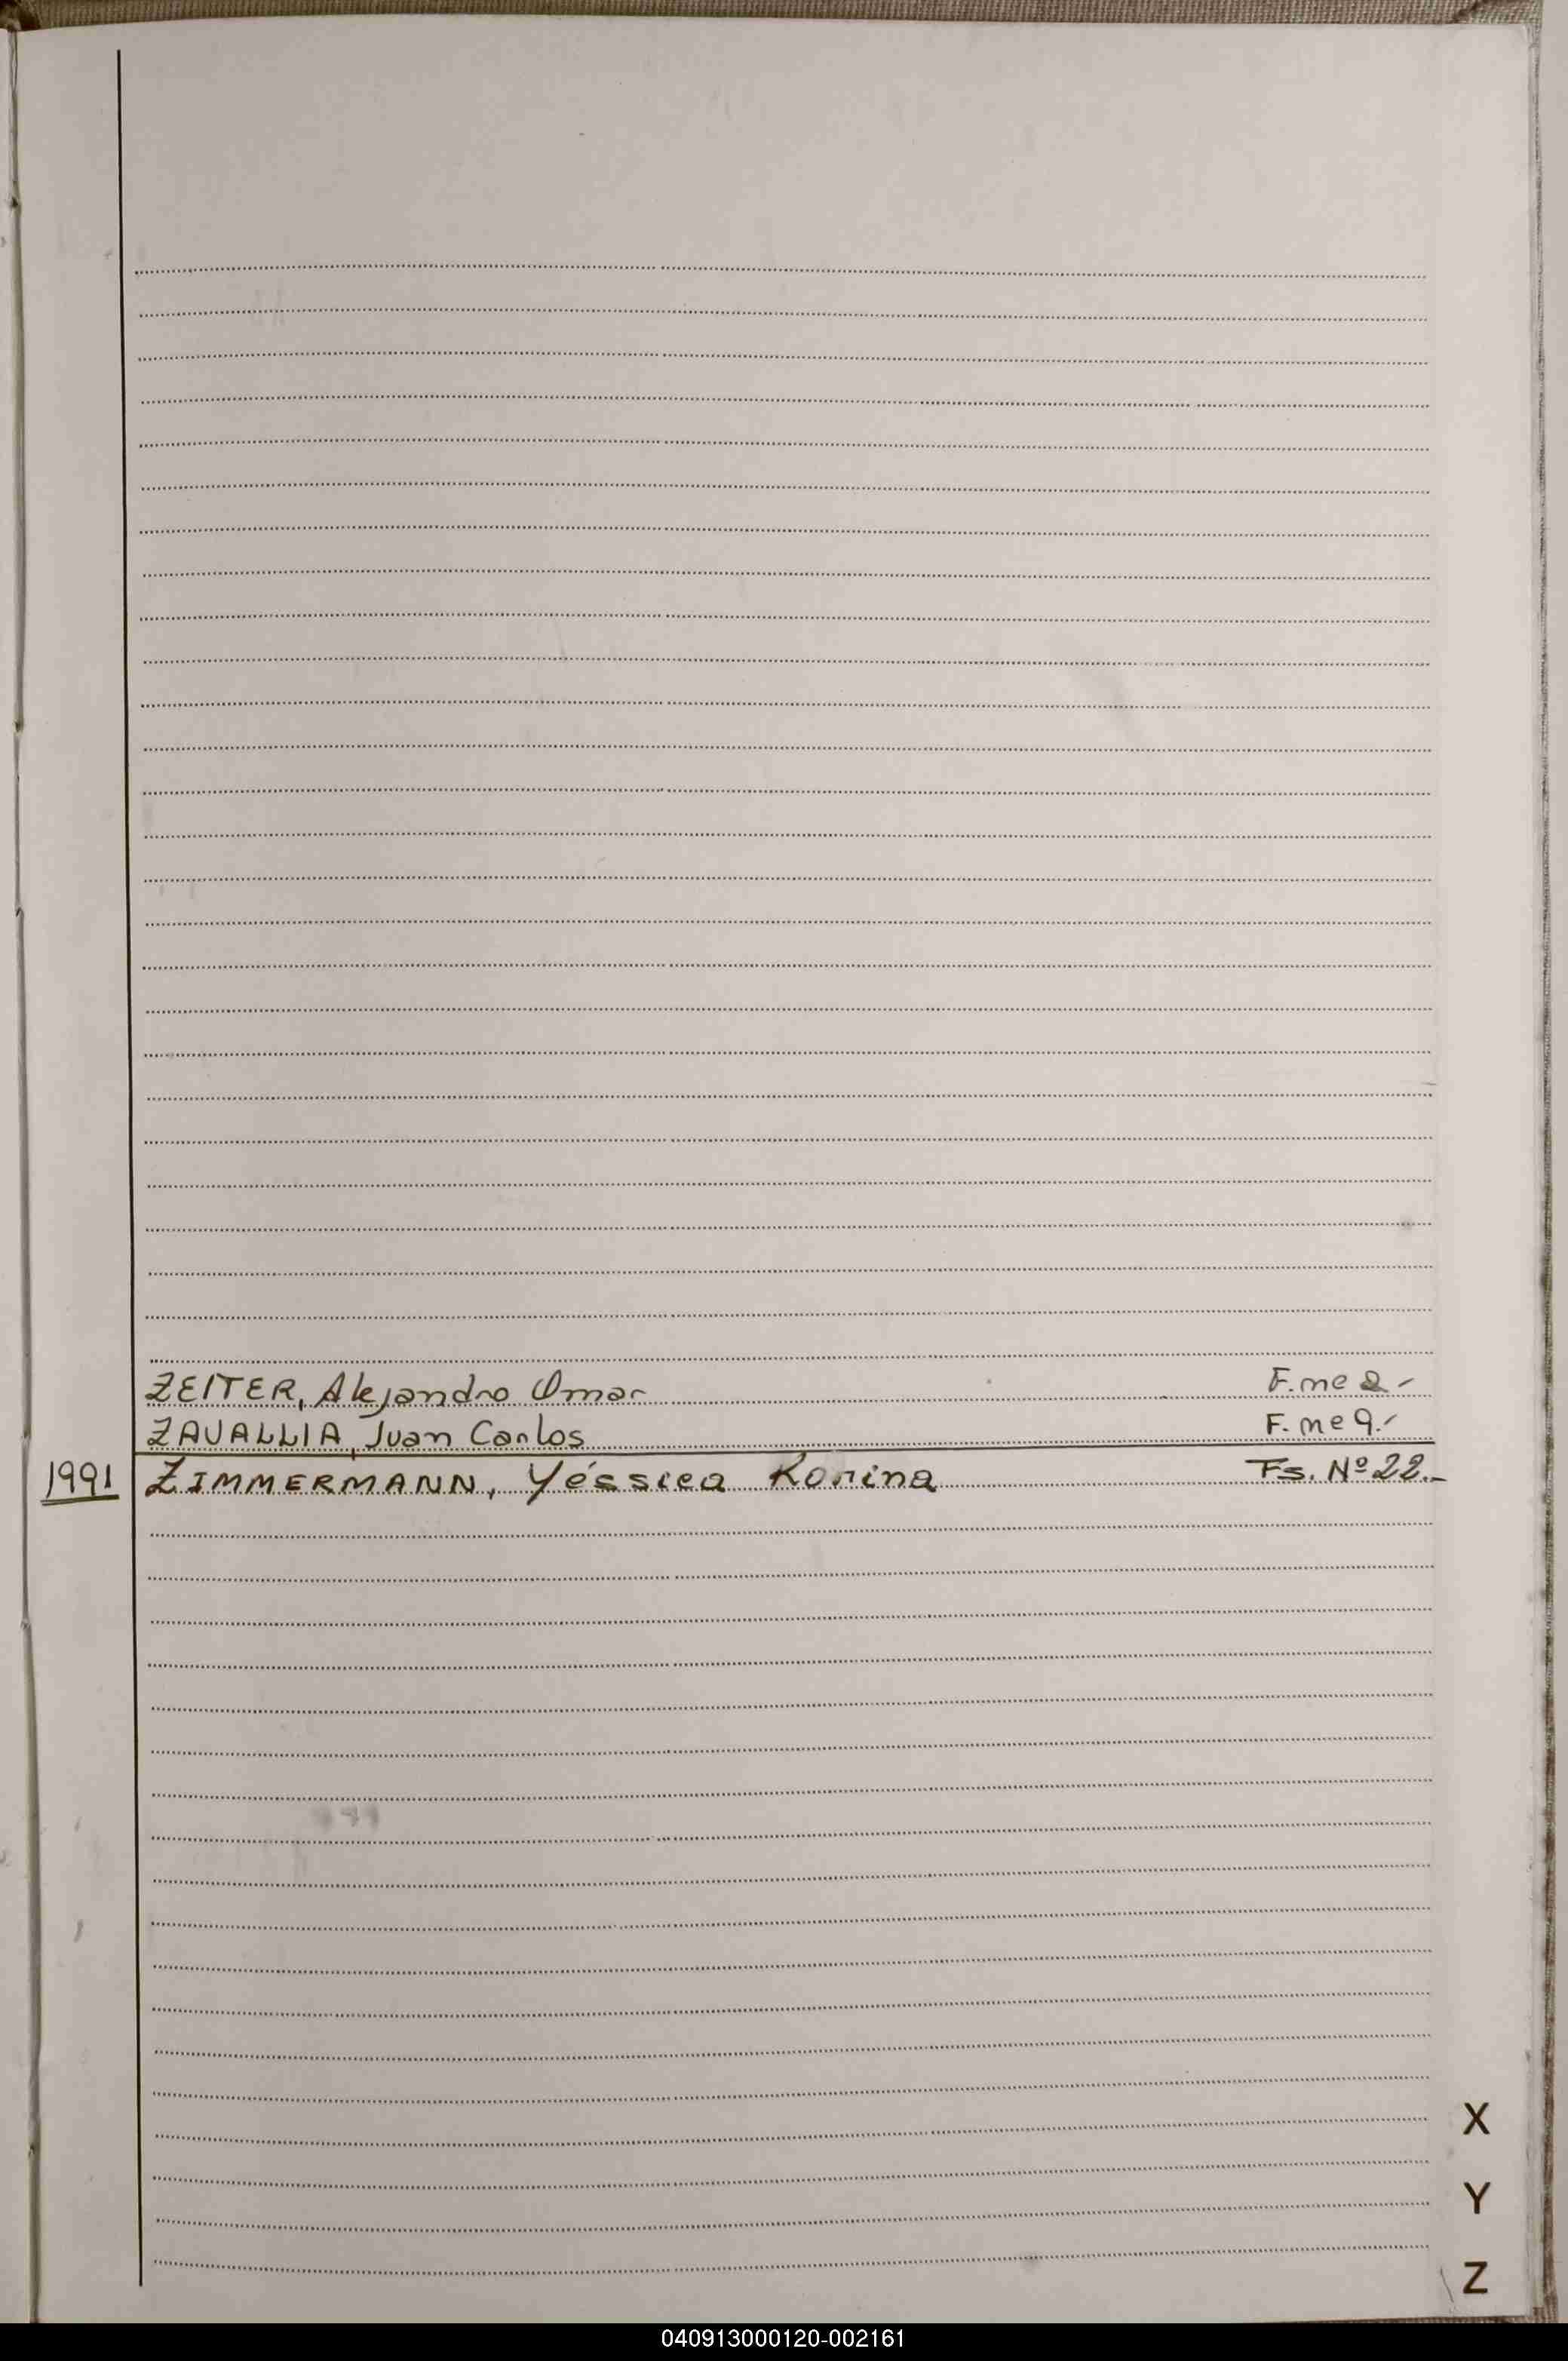 ZEITER, Alejandro Omar F. nº 2.-
ZAVALLIA, Juan Carlos F. nº 9.-
1991 ZIMMERMANN, Yéssica Korina Fs. Nº 22.-
X
Y
Z
040913000120-002161